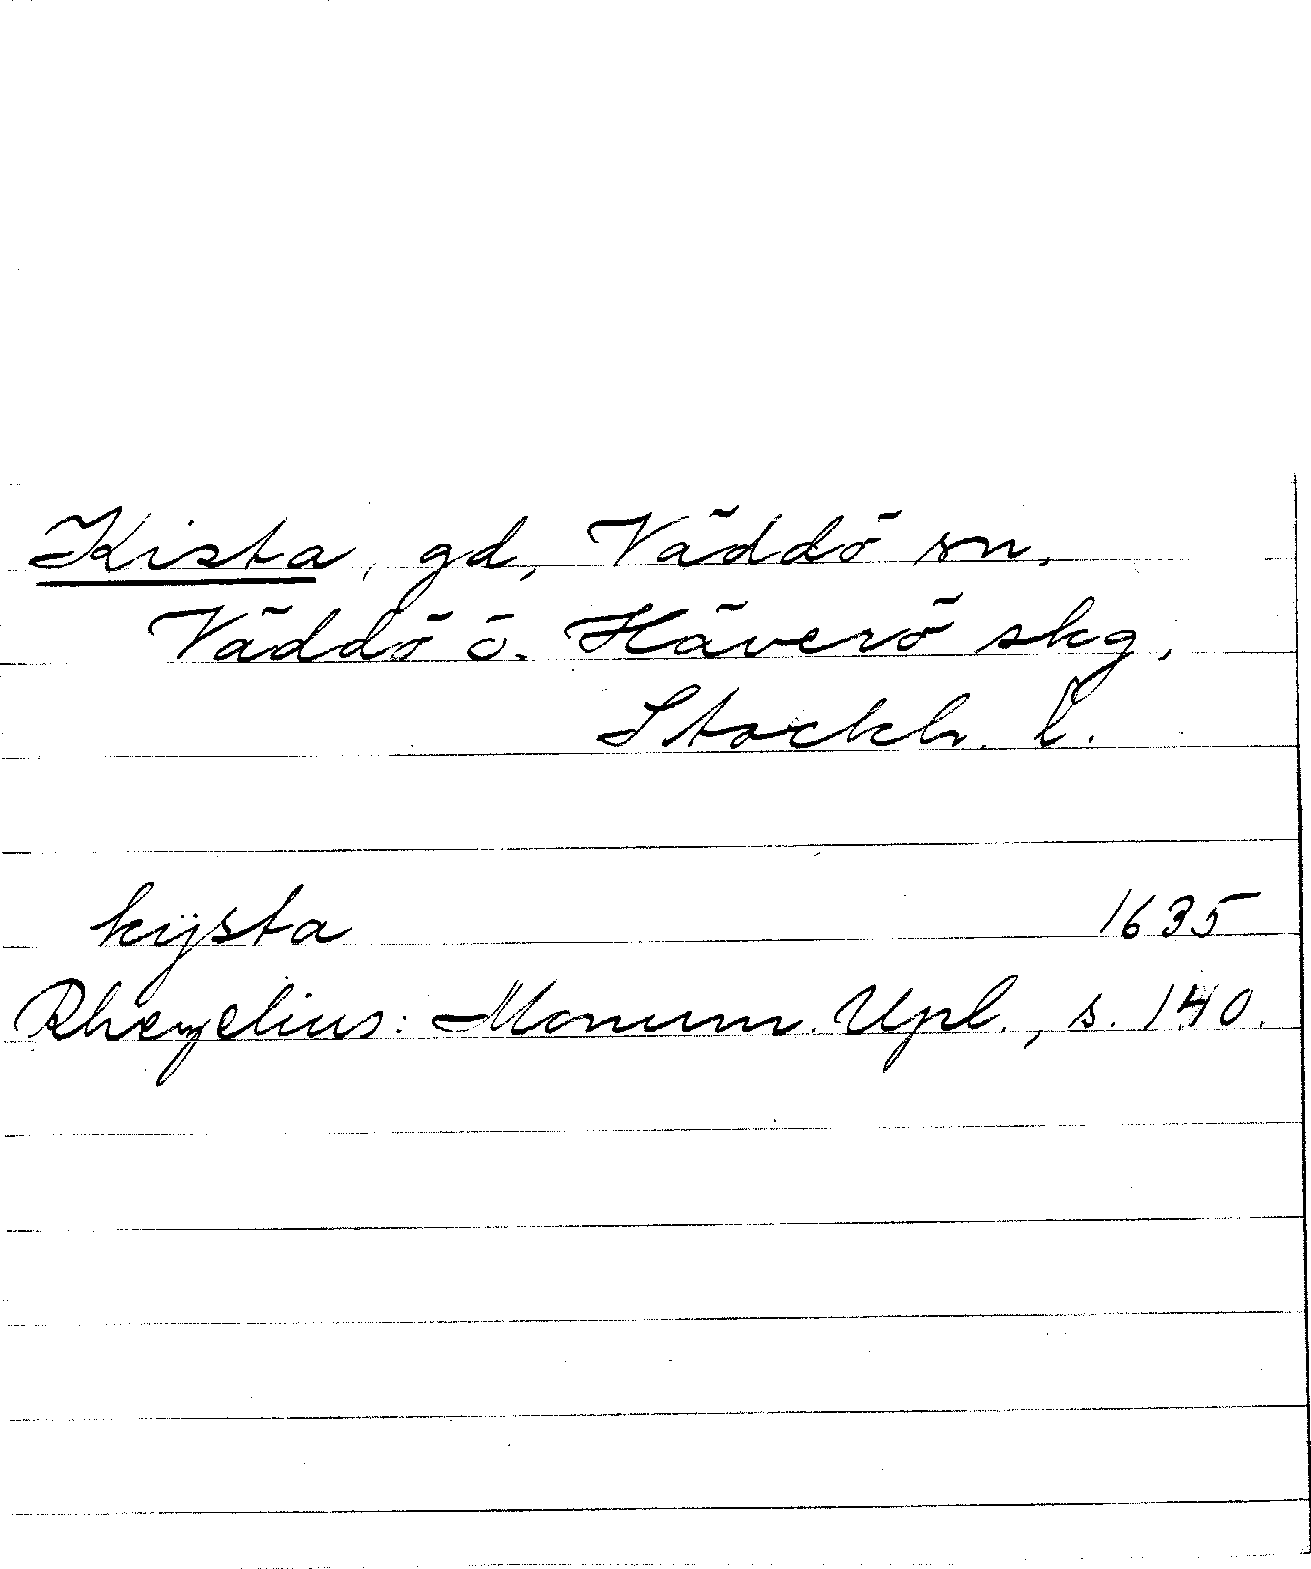 Kista, gd, Väddö sn,
Väddö o. Häverö skg,
Stockh. l.
kÿsta 1635
Rhezelius: Monum. Upl., s. 140.